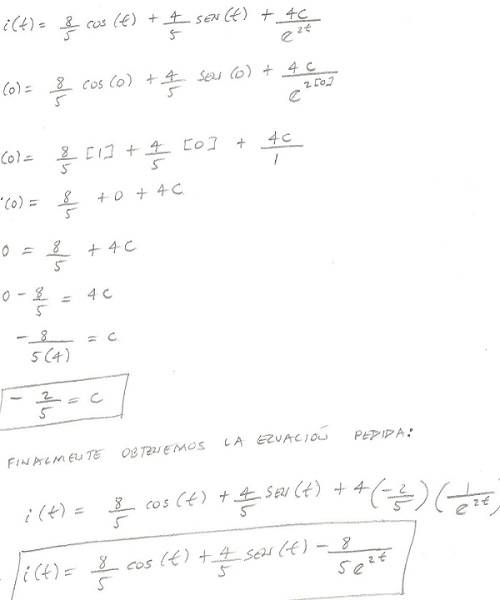 i(t) = 8/5 cos(t) + 4/5 sen(t) + 4c/e^2t
(0) = 8/5 cos(0) + 4/5 sen(0) + 4c/e^2[0]
(0) = 8/5 [1] + 4/5 [0] + 4c/1
(0) = 8/5 + 0 + 4c
0 = 8/5 + 4c
0 - 8/5 = 4c
- 8/5(4) = c
- 2/5 = c
FINALMENTE OBTENEMOS LA ECUACIÓN PEDIDA:
i(t) = 8/5 cos(t) + 4/5 sen(t) + 4(-2/5)(1/e^2t)
i(t) = 8/5 cos(t) + 4/5 sen(t) - 8/5e^2t